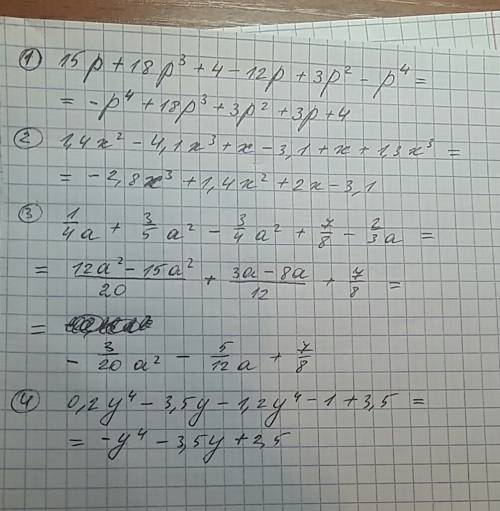 ① 15p + 18p³ + 4 − 12p + 3p² − p⁴ =
= −p⁴ + 18p³ + 3p² + 3p + 4
② 1,4x² − 4,1x³ + x − 3,1 + x + 1,3x³ =
= −2,8x³ + 1,4x² + 2x − 3,1
③ 1/4 a + 3/5 a² − 3/4 a² + 7/8 − 2/3 a =
= (12a² − 15a²)/20 + (3a − 8a)/12 + 7/8 =
=
− 3/20 a² − 5/12 a + 7/8
④ 0,2y⁴ − 3,5y − 1,2y⁴ − 1 + 3,5 =
= −y⁴ − 3,5y + 2,5